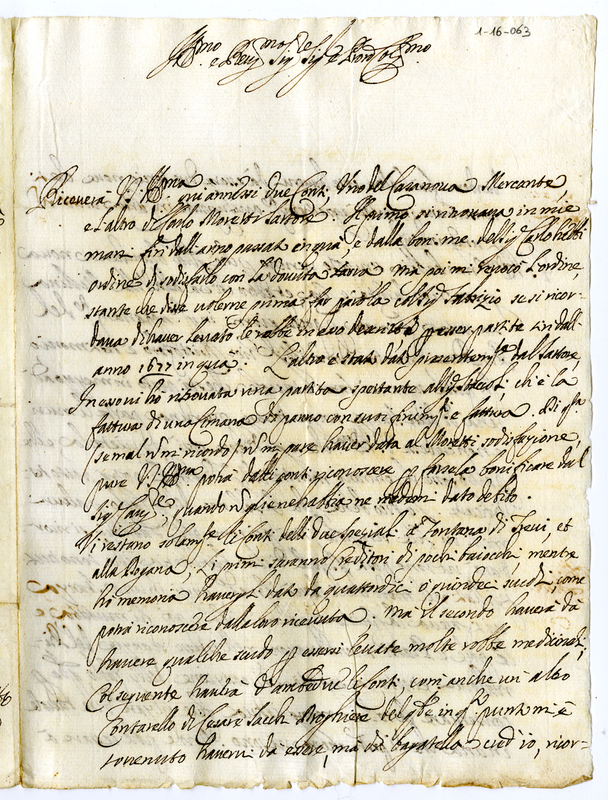 1-16-063
Ill.mo e Rev.mo Sig.re Sig.re e Pron Col.mo
Riceverà V. S. Ill.ma qui annessi due Conti, Uno del Casanova Mercante,
e l'altro di Carlo Moretti Sartore. Il primo si ritrovava in mie
mani fin dall'anno passato en quà e dalla bon. me. del Sig.r Carlo hebbi
ordine di sodisfarlo con la dovuta tara ma poi mi revocò l'ordine,
stante che disse volerne prima far parola col Sig.r Fabrizio se si ricor-
dava di haver levato le robbe in esso descritte per esser partite fin dall'
anno 1677 in quà. L'altro è stato dato presentem.te dal Sartore,
In esso vi ho ritrovata una partita spettante all' che è la
fattura di una Zimarra di panno con suoi finim.ti e fattura. Di q.sta
se mal nõ mi ricordo nõ mi pare haver data al Moretti sodisfazione,
pure V. S. Ill.ma potrà dalli conti riconoscere p farsela bonificare dal
Sig.r quando nõ gliene habbia ne meno dato debito.
Vi restano solam.te li Conti delli due Speziali à Fontana di Trevi, et
alla Dogana, Li primi saranno Creditori di pochi baiocchi, mentre
ho memoria haverli dati da quattordici ò quindeci scudi, come
potrà riconoscere dalla loro ricevuta. Ma il secondo haverà da
havere qualche scudo p essersi levate molte robbe medicinali,
Col seguente haverà d'ambedue li Conti, com'anche un altro
Contarello di Cesare Sacchi Droghiere del q.le in q.sto punto m'è
sovenuto havervi da essere, ma di bagatella cred'io, ricor-